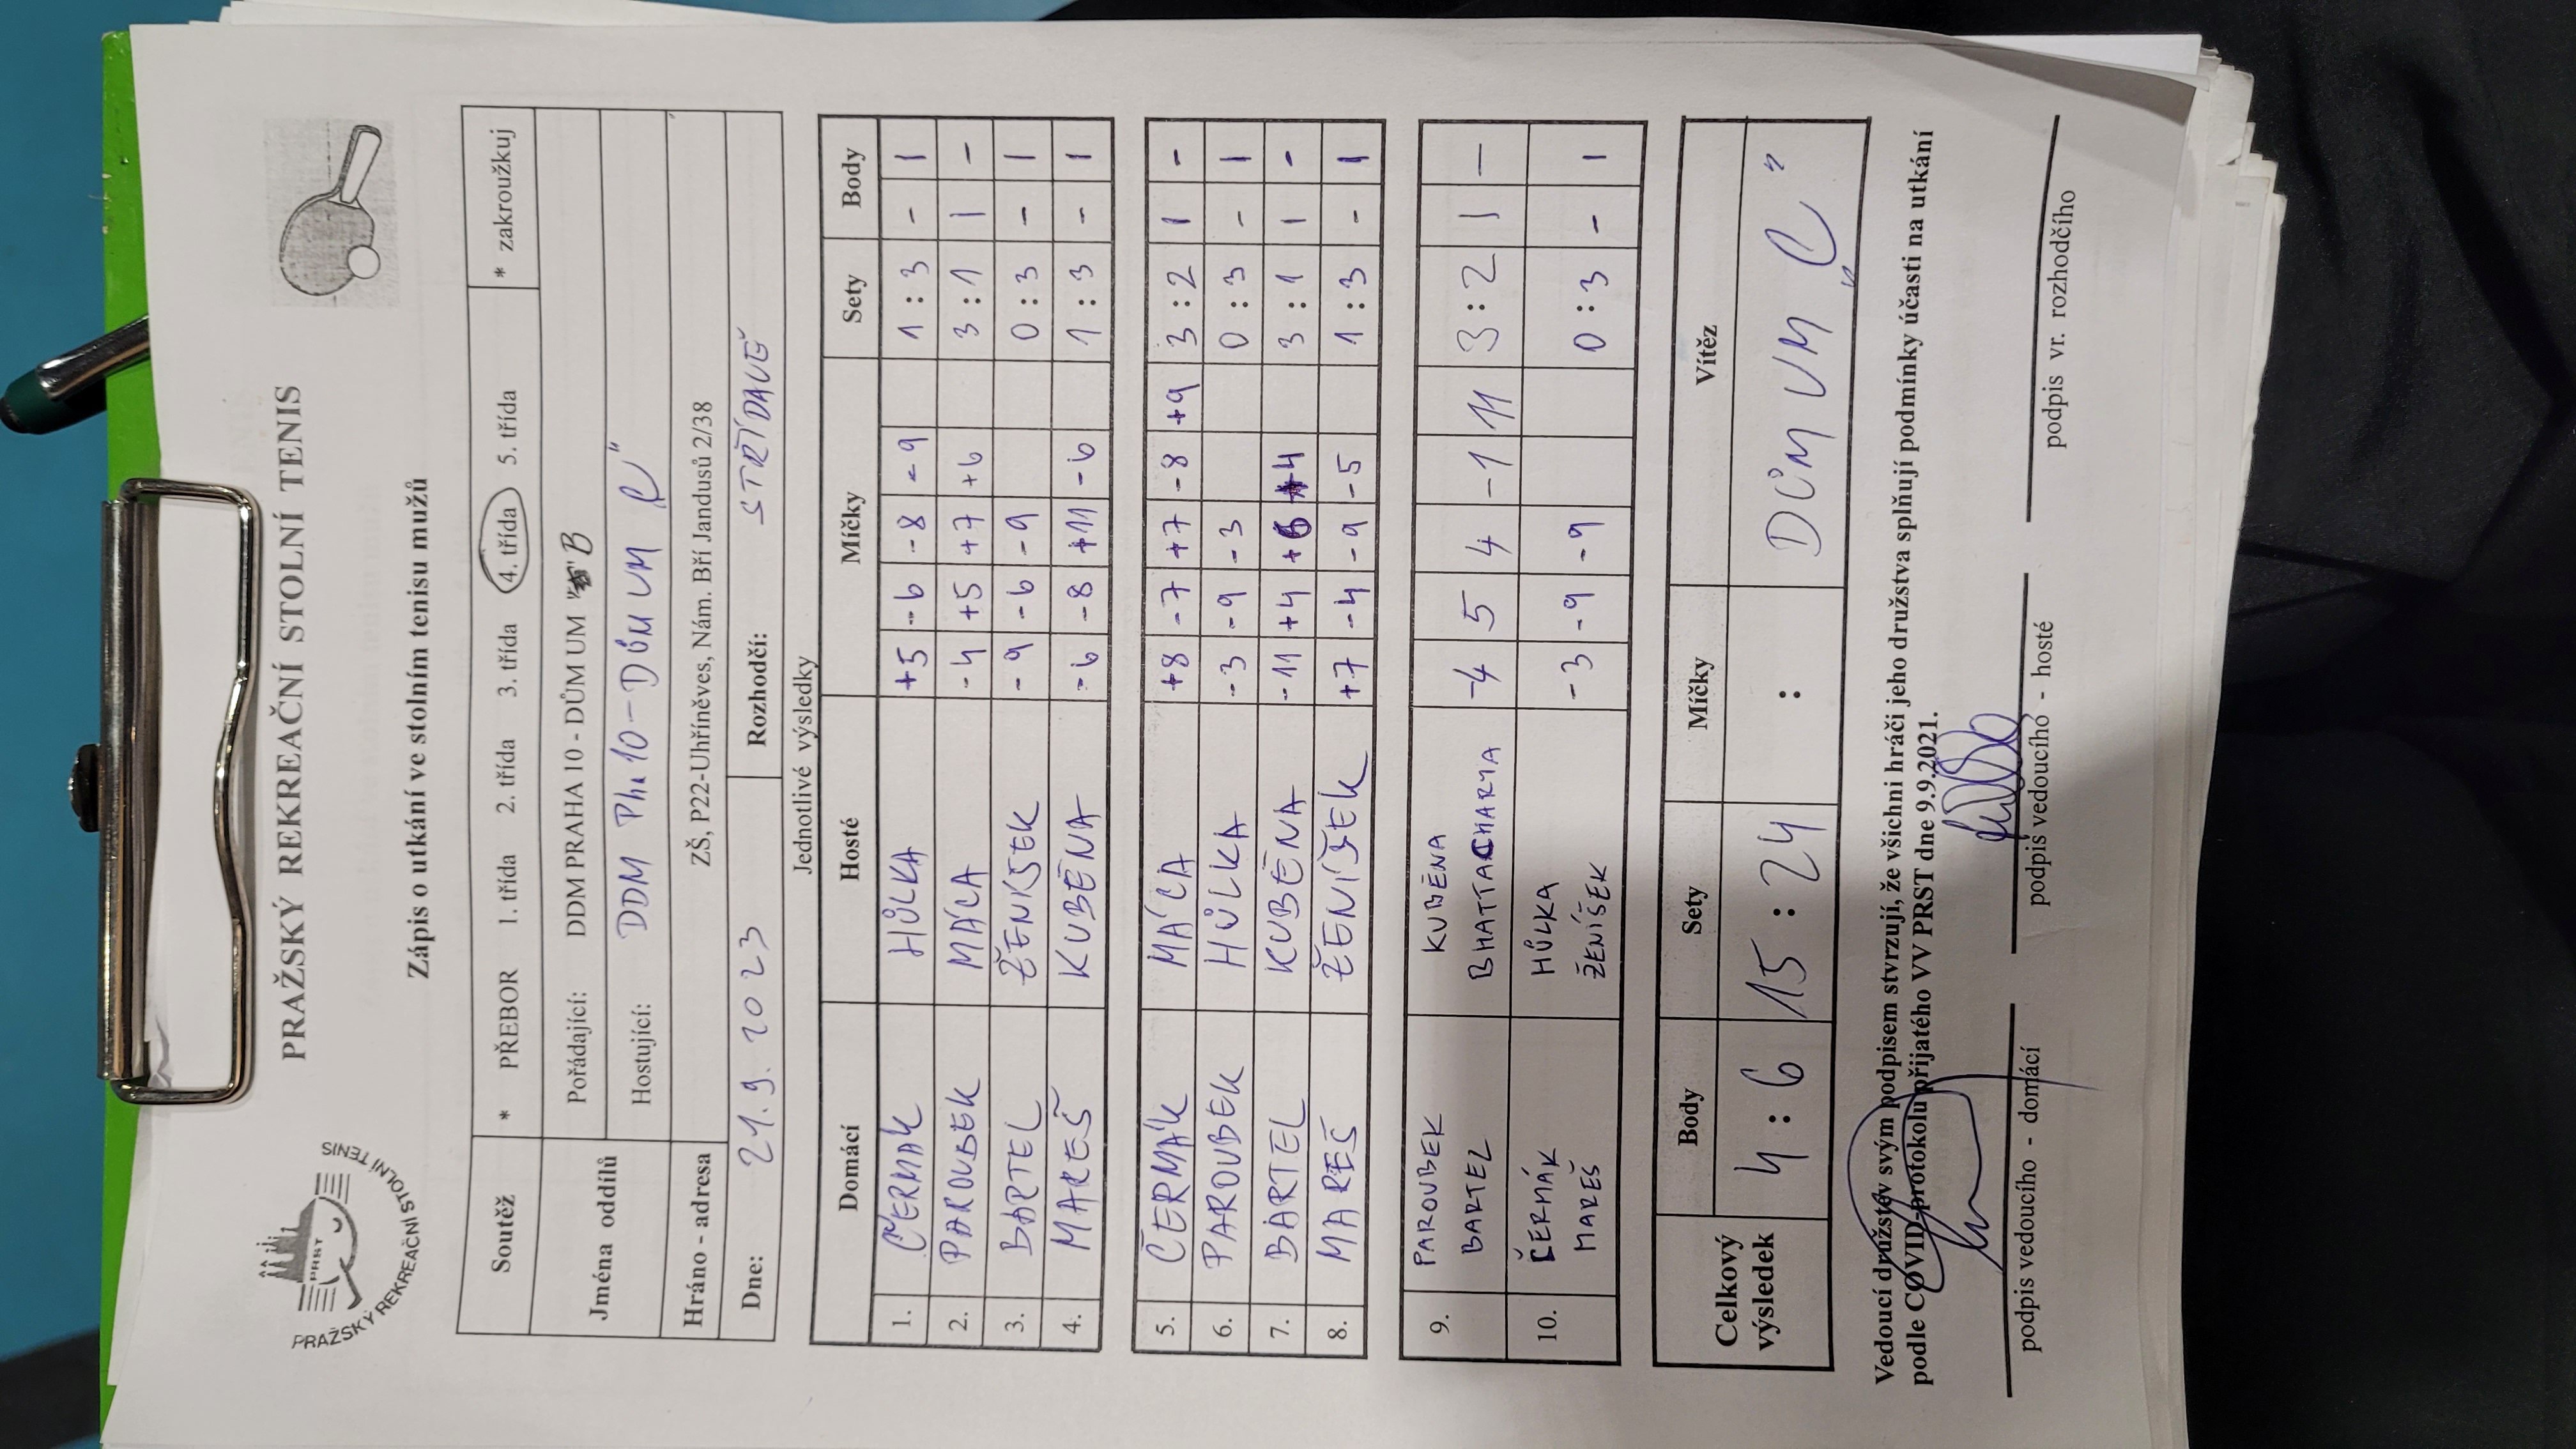 PRAŽSKÝ REKREAČNÍ STOLNÍ TENIS
PRST
PRAŽSKÝ REKREAČNÍ STOLNÍ TENIS
Zápis o utkání ve stolním tenisu mužů
Soutěž * PŘEBOR 1. třída 2. třída 3. třída 4. třída 5. třída * zakroužkuj
Jména oddílů Pořádající: DDM PRAHA 10 - DŮM UM B
Hostující: DDM Pha 10 - DŮM UM
Hráno - adresa ZŠ, P22-Uhříněves, Nám. Bří Jandusů 2/38
Dne: 21.9. 2023 Rozhodčí: STŘÍDAVĚ
Jednotlivé výsledky
Domácí Hosté Míčky Sety Body
1. ČERMÁK HŮLKA +5 -6 -8 -9 1 : 3 - 1
2. PAROUBEK MÁCA -4 +5 +7 +6 3 : 1 1 -
3. BARTEL ŽENÍŠEK -9 -6 -9 0 : 3 - 1
4. MAREŠ KUBĚNA -6 -8 +11 -6 1 : 3 - 1
5. ČERMÁK MÁCA +8 -7 +7 -8 +9 3 : 2 1 -
6. PAROUBEK HŮLKA -3 -9 -3 0 : 3 - 1
7. BARTEL KUBĚNA -11 +4 +6 +4 3 : 1 1 -
8. MAREŠ ŽENÍŠEK +7 -4 -9 -5 1 : 3 - 1
9. PAROUBEK KUBĚNA
BARTEL BHATTACHARMA -4 5 4 -1 11 3 : 2 1 -
10. ČERMÁK HŮLKA
MAREŠ ŽENÍŠEK -3 -9 -9 0 : 3 - 1
Celkový výsledek Body Sety Míčky Vítěz
4 : 6 15 : 24 : DŮM UM
Vedoucí družstev svým podpisem stvrzují, že všichni hráči jeho družstva splňují podmínky účasti na utkání
podle COVID-protokolu přijatého VV PRST dne 9.9.2021.
podpis vedoucího - domácí podpis vedoucího - hosté podpis vr. rozhodčího